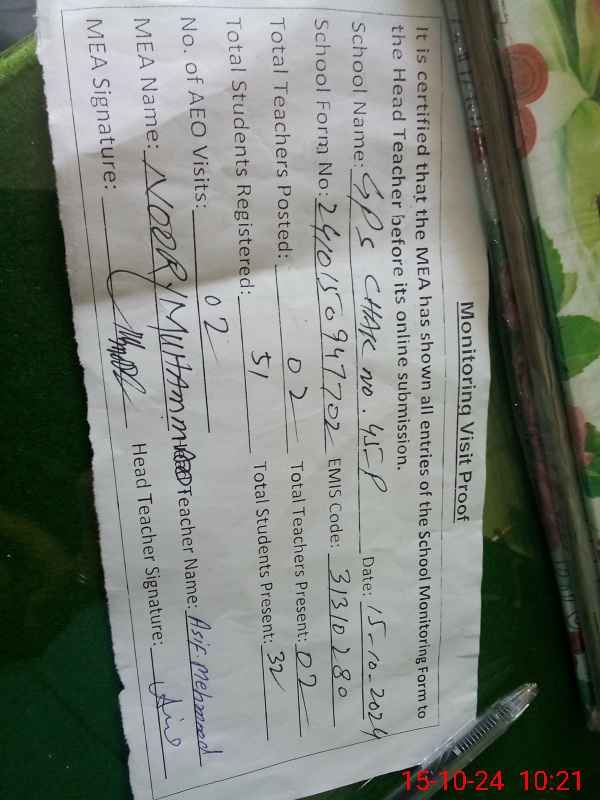 Monitoring Visit Proof
It is certified that the MEA has shown all entries of the School Monitoring Form to
the Head Teacher before its online submission.
School Name: GPS CHAK no. 45-P Date: 15-10-2024
School Form No: 2410150947702 EMIS Code: 31310280
Total Teachers Posted: 02 Total Teachers Present: 02
Total Students Registered: 51 Total Students Present: 32
No. of AEO Visits: 02
MEA Name: NOOR MUHAMMAD Head Teacher Name: Asif Mehmood
MEA Signature: Head Teacher Signature: Asif
15-10-24 10:21